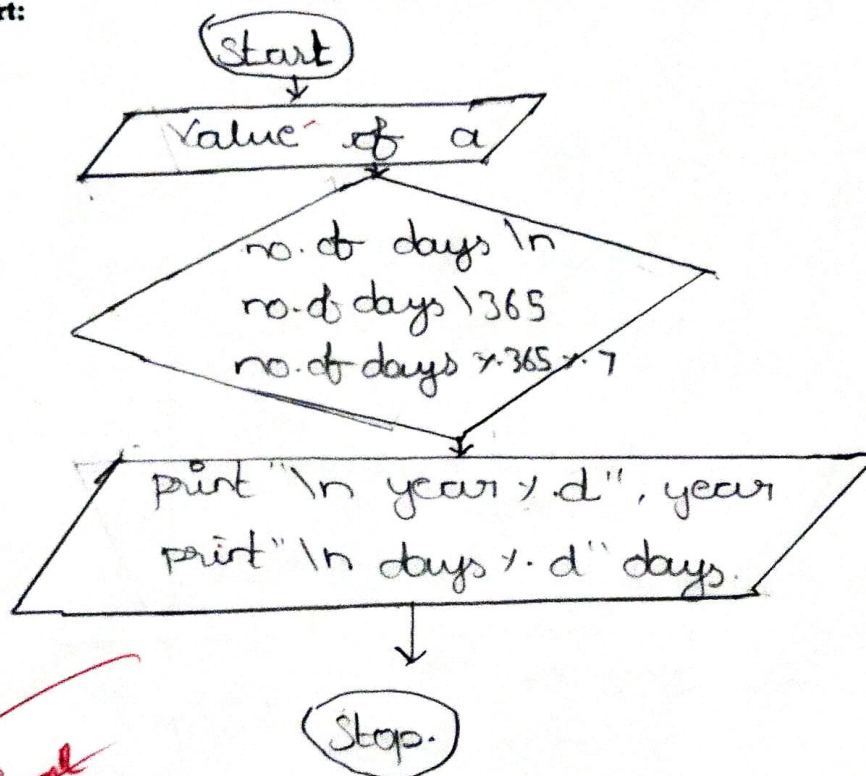 rt:
Start
Value of a
no. of days \n
no. of days \365
no. of days %.365 %. 7
print "\n year %.d", year
print "\n days %. d" days.
Stop.